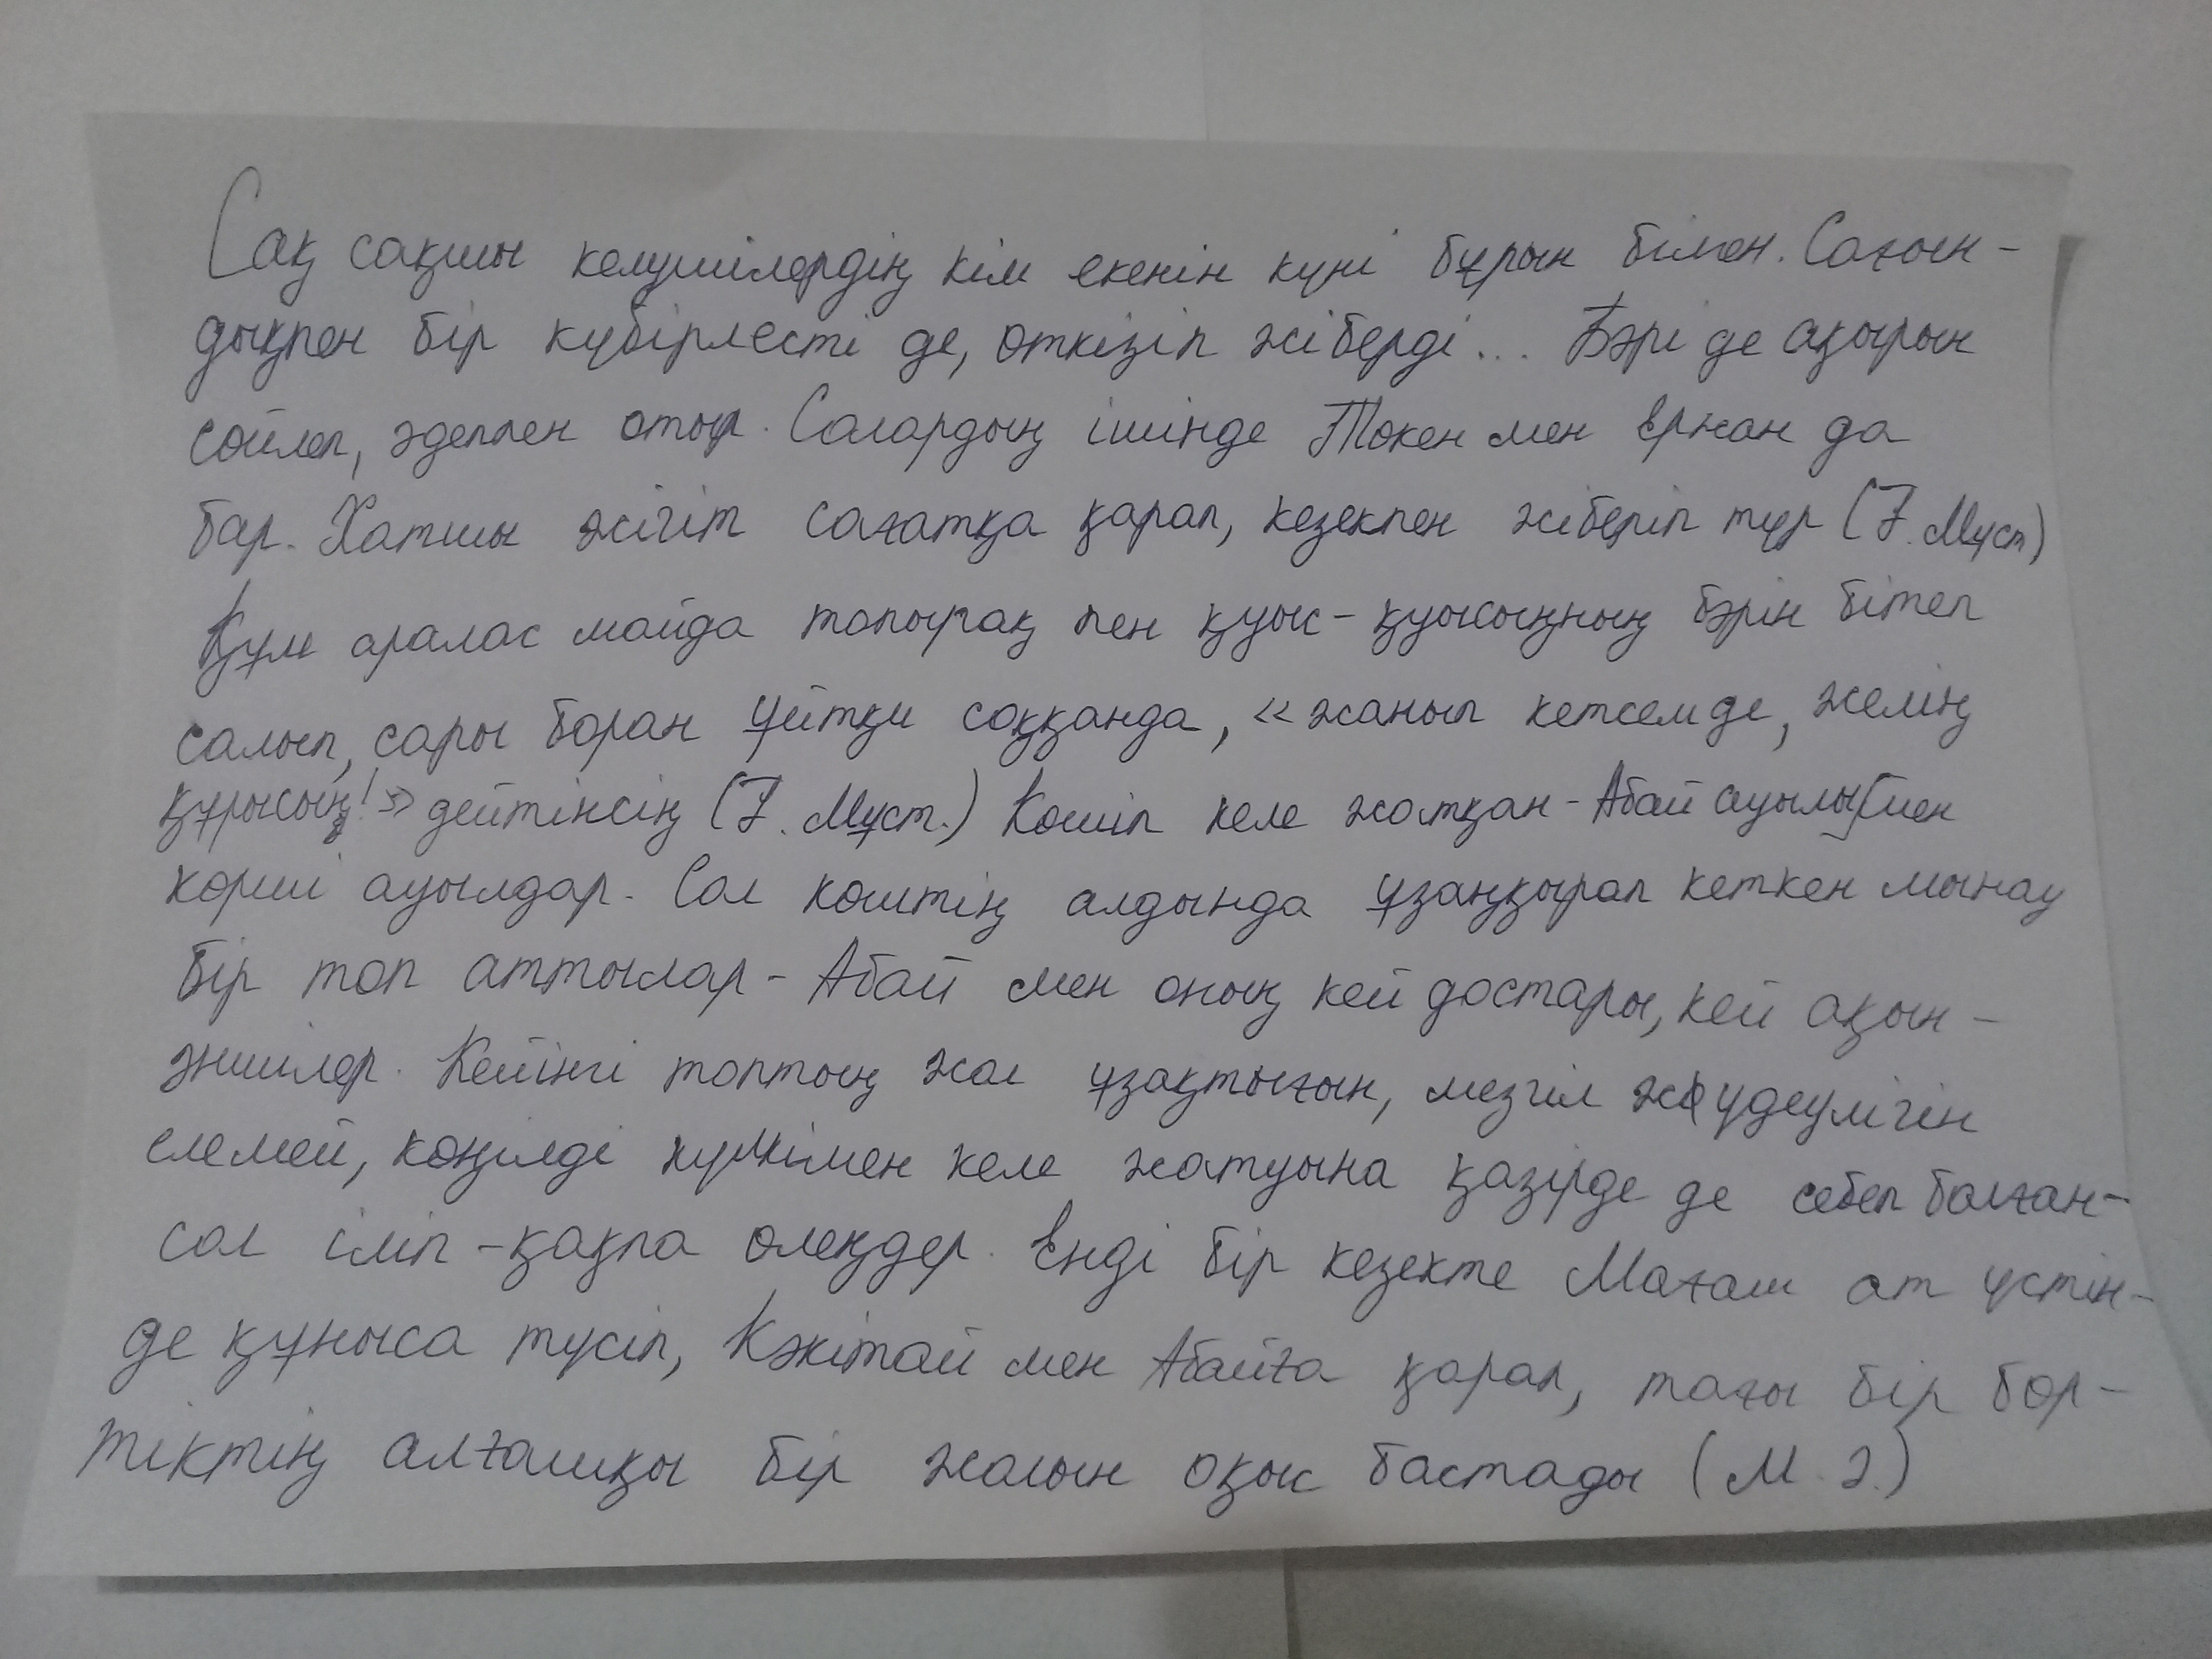 Сақ сақшы келушілердің кім екенін күні бұрын білген. Сағын-
дықпен бір күбірлесті де, өткізіп жіберді... Бәрі де ақырын
сөйлеп, әдеппен отыр. Солардың ішінде Төкен мен Ержан да
бар. Хатшы жігіт сағатқа қарап, кезекпен жіберіп тұр (Ғ. Мүст)
Құм аралас майда топырақ пен қуыс-қуысыңның бәрін бітеп
салып, сары боран ұйтқи соққанда, «жанып кетсем де, желің
құрысың!» дейтінсің (Ғ. Мүст.) Көшіп келе жатқан - Абай ауылы мен
көрші ауылдар. Сол көштің алдында ұзаңқырап кеткен мынау
бір топ аттылар - Абай мен оның кей достары, кей ақын-
әншілер. Кейінгі топтың жол ұзақтығын, мезгіл жүдеулігін
елемей, көңілді күлкімен келе жатуына қазірде де себеп болған-
сол іліп-қақпа өлеңдер. Енді бір кезекте Мағаш ат үстін-
де құныса түсіп, Кәкітай мен Абайға қарап, тағы бір бөр-
тіктің алғашқы бір жолын оқып бастады (М. Ә.)